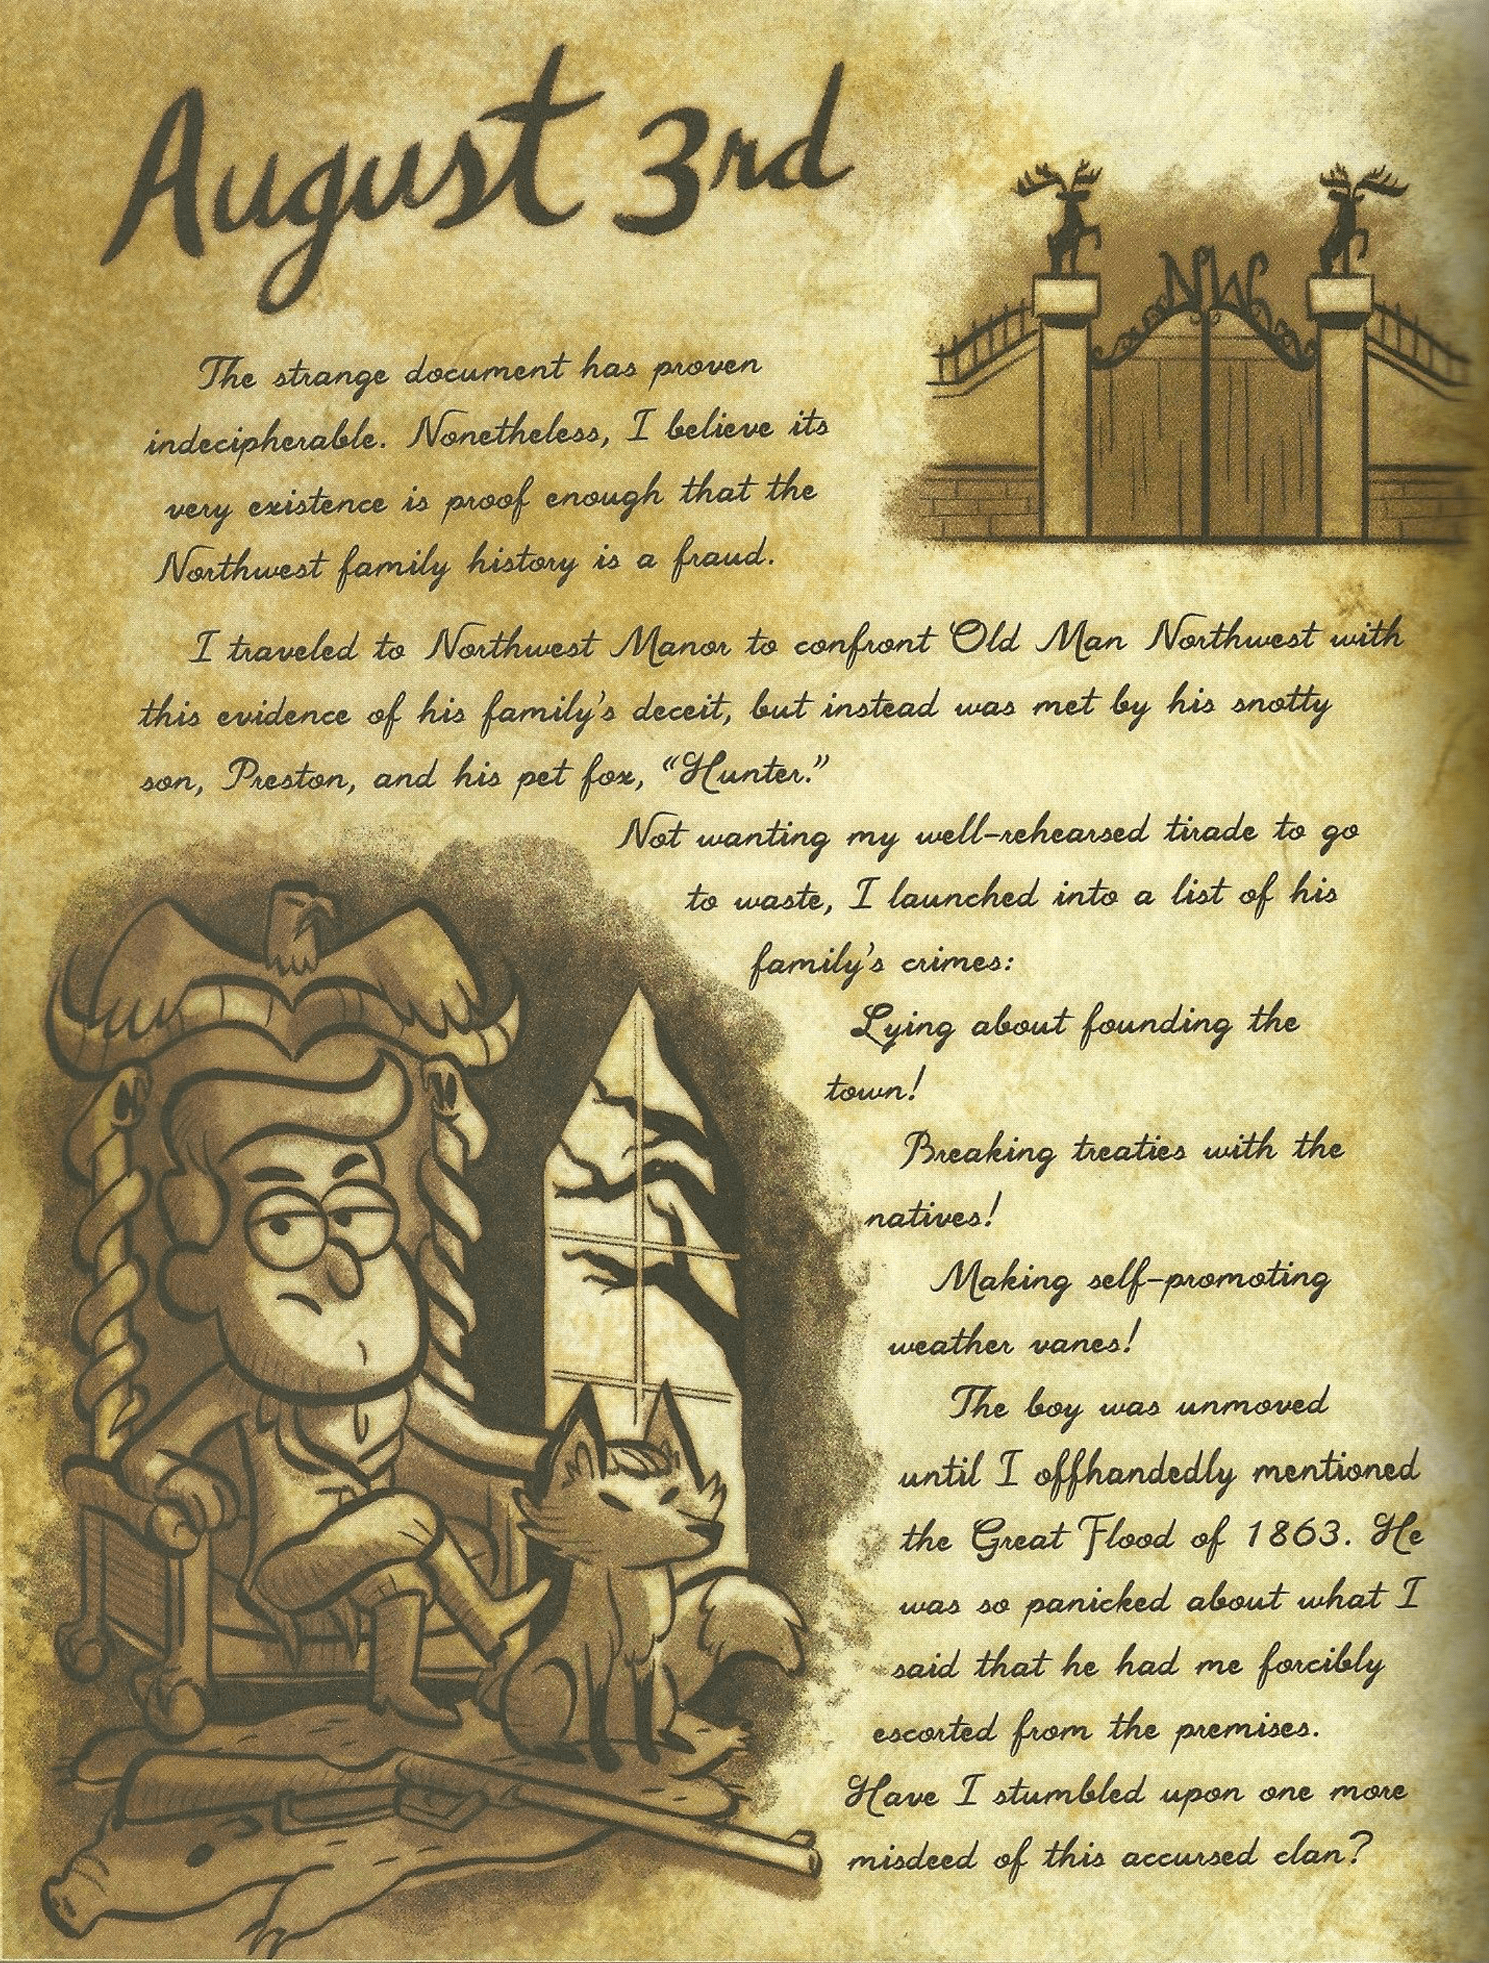 August 3rd
NW
The strange document has proven
indecipherable. Nonetheless, I believe its
very existence is proof enough that the
Northwest family history is a fraud.
I traveled to Northwest Manor to confront Old Man Northwest with
this evidence of his family's deceit, but instead was met by his snotty
son, Preston, and his pet fox, "Hunter."
Not wanting my well-rehearsed tirade to go
to waste, I launched into a list of his
family's crimes:
Lying about founding the
town!
Breaking treaties with the
natives!
Making self-promoting
weather vanes!
The boy was unmoved
until I offhandedly mentioned
the Great Flood of 1863. He
was so panicked about what I
said that he had me forcibly
escorted from the premises.
Have I stumbled upon one more
misdeed of this accursed clan?